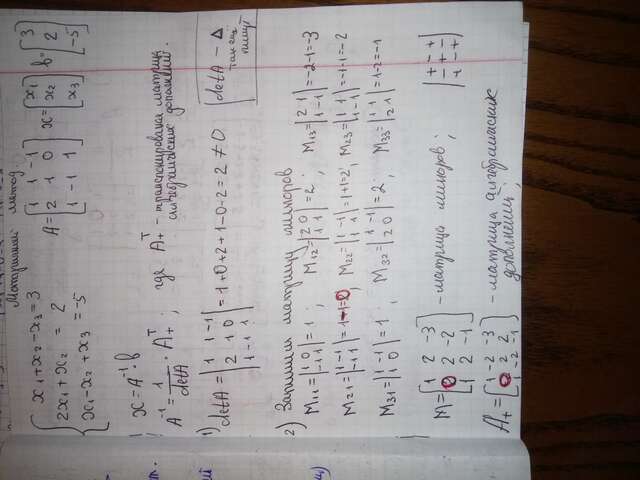 Матричний метод
{ x₁+x₂-x₃=3
2x₁+x₂ = 2
x₁-x₂+x₃=-5
A=[1 1 -1; 2 1 0; 1 -1 1] x=[x₁; x₂; x₃] b=[3; 2; -5]
x=A⁻¹·b
A⁻¹=1/detA · A₊ᵀ; где A₊ᵀ - транспонирована матрица алгебраических дополнений.
1) detA=|1 1 -1; 2 1 0; 1 -1 1|=1+0+2+1-0-2=2≠0
detA - Δ
так ещё
пишут
2) Запишем матрицу миноров
M₁₁=|1 0; -1 1|=1; M₁₂=|2 0; 1 1|=2; M₁₃=|2 1; 1 -1|=-2-1=-3
M₂₁=|1 -1; -1 1|=1-1=0 M₂₂=|1 -1; 1 1|=1+1=2; M₂₃=|1 1; 1 -1|=-1-1=-2
M₃₁=|1 -1; 1 0|=1; M₃₂=|1 -1; 2 0|=2; M₃₃=|1 1; 2 1|=1-2=-1
M=[1 2 -3; 0 2 -2; 1 2 -1] - матрица миноров; |+ - +; - + -; + - +|
A₊=[1 -2 -3; 0 2 2; 1 -2 -1] - матрица алгебраических
дополнений;